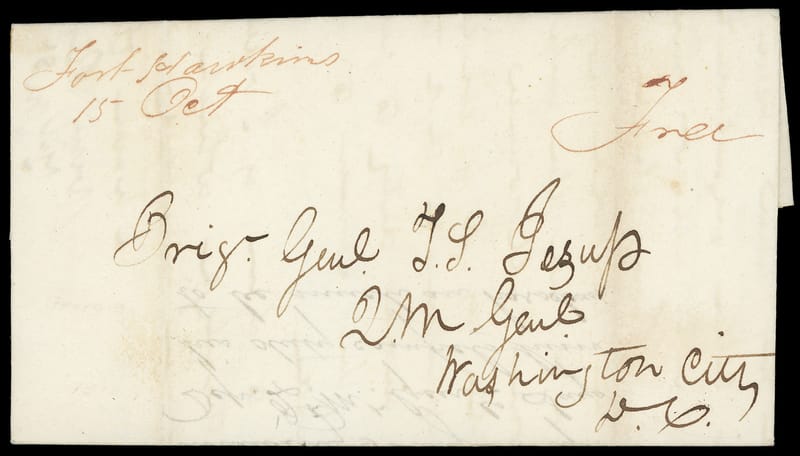 Fort Hawkins
15 Oct
Free
Brigr. Genl. T.S. Jesup
Q.M Genl
Washington City
D.C.